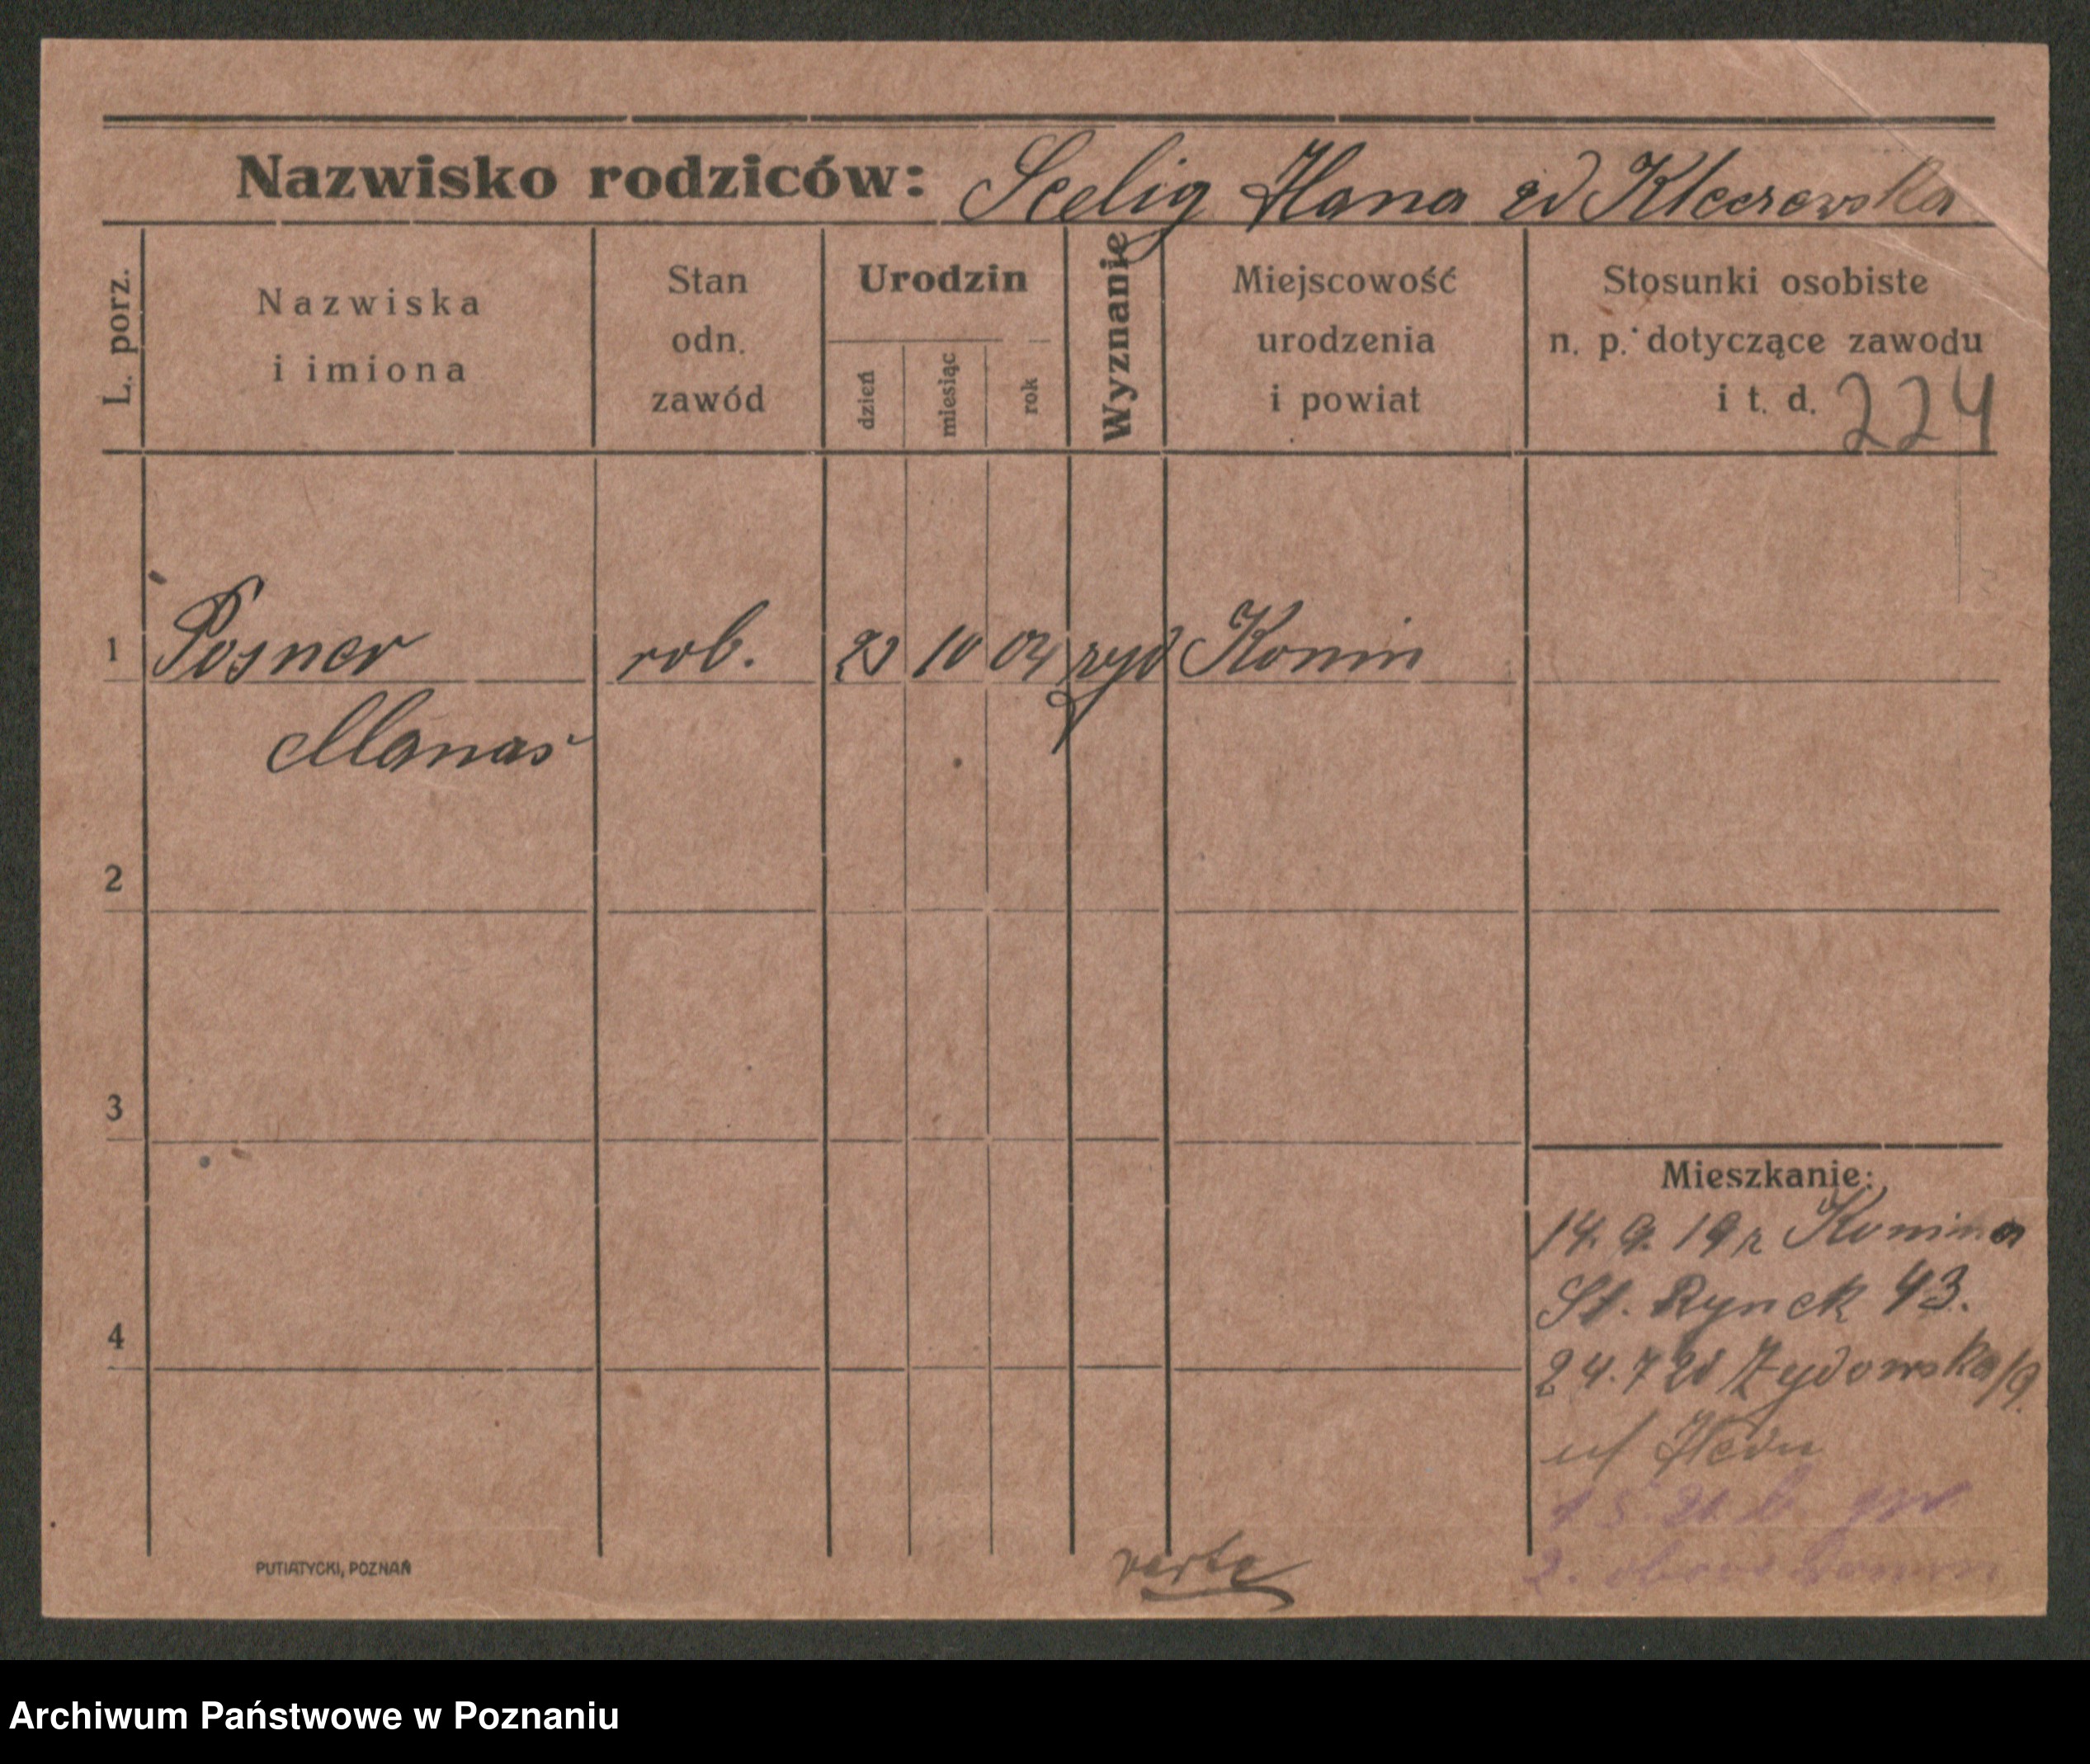 Nazwisko rodziców: Seelig Hana zd Kleczewska
L. porz.
Nazwiska
i imiona
Stan
odn.
zawód
Urodzin
dzień
miesiąc
rok
Wyznanie
Miejscowość
urodzenia
i powiat
Stosunki osobiste
n. p. dotyczące zawodu
i t. d. 224
1 Posner rob. 23 10 04 żyd Konin
Manas
2
3
4
Mieszkanie:
14. 9. 19 z Konina
St. Rynek 43.
24. 7 20 Żydowska
PUTIATYCKI, POZNAŃ
verte
Archiwum Państwowe w Poznaniu